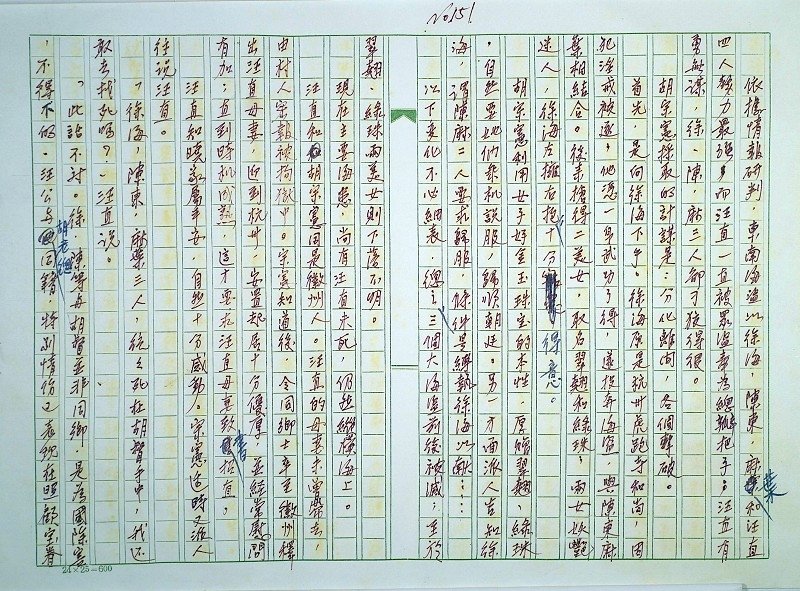 No 151
依據情報研判,東南海盜以徐海、陳東、麻葉和汪直
四人勢力最強,而汪直一直被眾盜奉為總把手;汪直有
勇無謀,徐、陳、麻三人卻刁狡得很。
胡宗憲採取的計謀是:分化離間,各個擊破。
首先,是向徐海下手。徐海原是杭州虎跑寺和尚,因
犯淫戒被逐,他憑一身武功了得,遂投奔海寇,與陳東麻
葉相結合。後來搶得二美女,取名翠翹和綠珠,兩女妖艷
迷人,徐海左擁右抱,十分得意。
胡宗憲利用女子好金玉珠宝的本性,厚贈翠翹、綠珠
,自然要她們乘机說服,歸順朝廷。另一方面派人告知徐
海,謂陳麻二人要求歸服,條件是縛執徐海以献……
以下變化不必細表,總之三個大海盜前後被滅,至於
翠翹、綠珠兩美女則下落不明。
現在主要海患,尚有汪直未死,仍然縱橫海上。
汪直和胡宗憲同是徽州人。汪直的母妻子曾帶去,
由於人宗親被拘獄中。宗憲知道後,令同鄉士卒至徽州釋
出汪直母妻,迎到杭州,安置起居十分優厚,並經常慰問
有加;直到時机成熟,這才要汪直母妻致書招直。
汪直知曉家屬平安,自然十分感動。宗憲這時又派人
往說汪直。
「徐海、陳東、麻葉三人,統々死在胡督手中,我还
敢去找死嗎?」汪直說。
「此話不对。徐、陳等與胡督並非同鄉,是為國除害
,不得不的。汪公与胡老總同籍,特別情份已表現在照顧宗眷
24×25=600